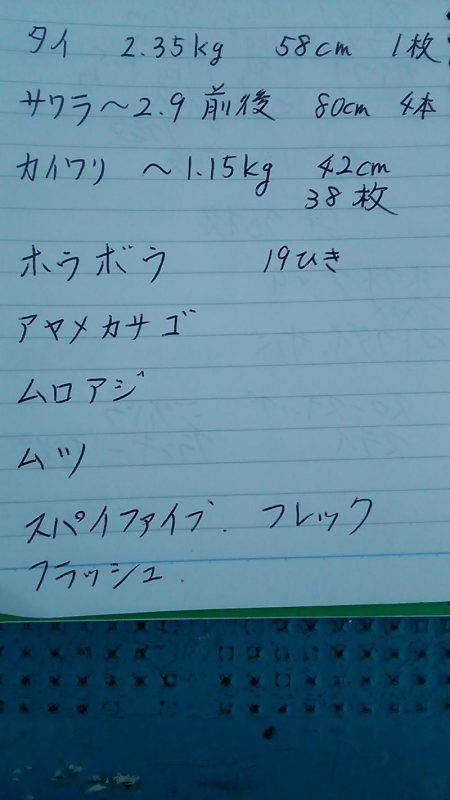 タイ 2.35kg 58cm 1枚
サワラ～2.9前後 80cm 4本
カイワリ ～1.15kg 42cm
38枚
ホウボウ 19ひき
アヤメカサゴ
ムロアジ
ムツ
スパイファイブ. フレック
フラッシュ.